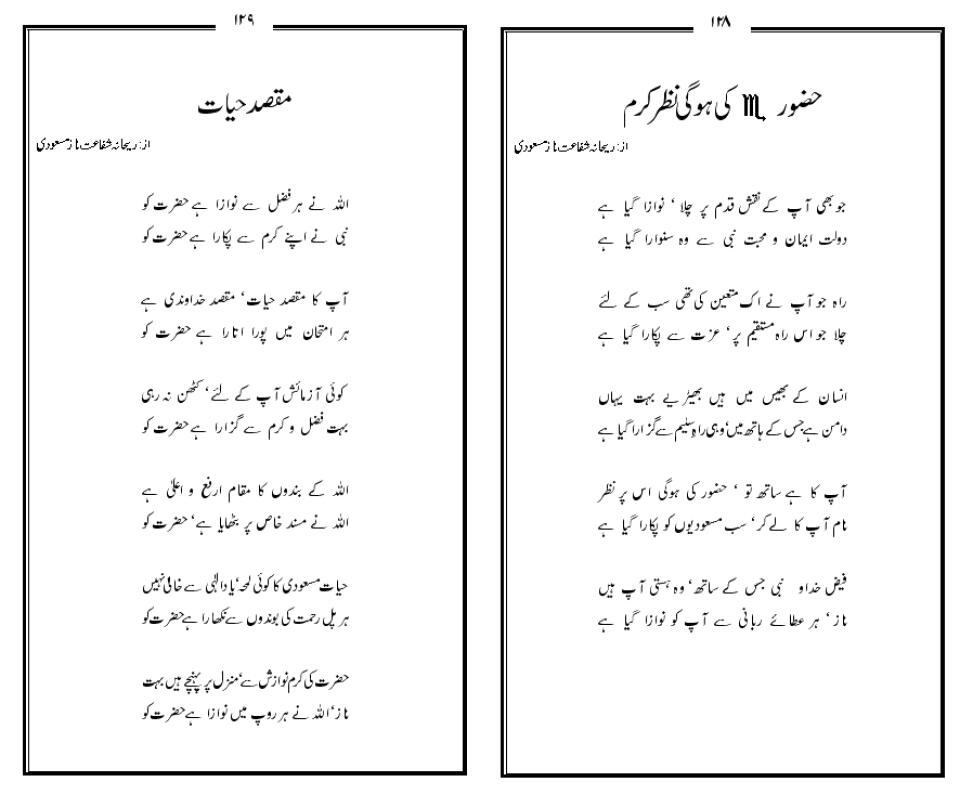 ۱۲۸
حضور ♏ کی ہوگی نظر کرم
از: ریحانہ شفاعت ناز مسعودی
جو بھی آپ کے نقش قدم پر چلا ‘ نوازا گیا ہے
دولت ایمان و محبت نبی سے وہ سنوارا گیا ہے
راہ جو آپ نے اک متعین کی تھی سب کے لئے
چلا جو اس راہ مستقیم پر‘ عزت سے پکارا گیا ہے
انسان کے بھیس میں ہیں بھیڑیے بہت یہاں
دامن ہے جس کے ہاتھ میں‘ وہی راہِ سلیم سے گزارا گیا ہے
آپ کا ہے ساتھ تو ‘ حضور کی ہوگی اس پر نظر
نام آپ کا لے کر‘ سب مسعودیوں کو پکارا گیا ہے
فیض خدا و نبی جس کے ساتھ‘ وہ ہستی آپ ہیں
ناز‘ ہر عطائے ربانی سے آپ کو نوازا گیا ہے
۱۲۹
مقصد حیات
از: ریحانہ شفاعت ناز مسعودی
اللہ نے ہر فضل سے نوازا ہے حضرت کو
نبی نے اپنے کرم سے پکارا ہے حضرت کو
آپ کا مقصد حیات‘ مقصد خداوندی ہے
ہر امتحان میں پورا اتارا ہے حضرت کو
کوئی آزمائش آپ کے لئے‘ کٹھن نہ رہی
بہت فضل و کرم سے گزارا ہے حضرت کو
اللہ کے بندوں کا مقام ارفع و اعلیٰ ہے
اللہ نے مسند خاص پر بٹھایا ہے‘ حضرت کو
حیات مسعودی کا کوئی لمحہ‘ یاد الٰہی سے خالی نہیں
ہر پل رحمت کی بوندوں سے نکھارا ہے حضرت کو
حضرت کی کرم نوازش سے‘ منزل پر پہنچے ہیں بہت
ناز‘ اللہ نے ہر روپ میں نوازا ہے حضرت کو